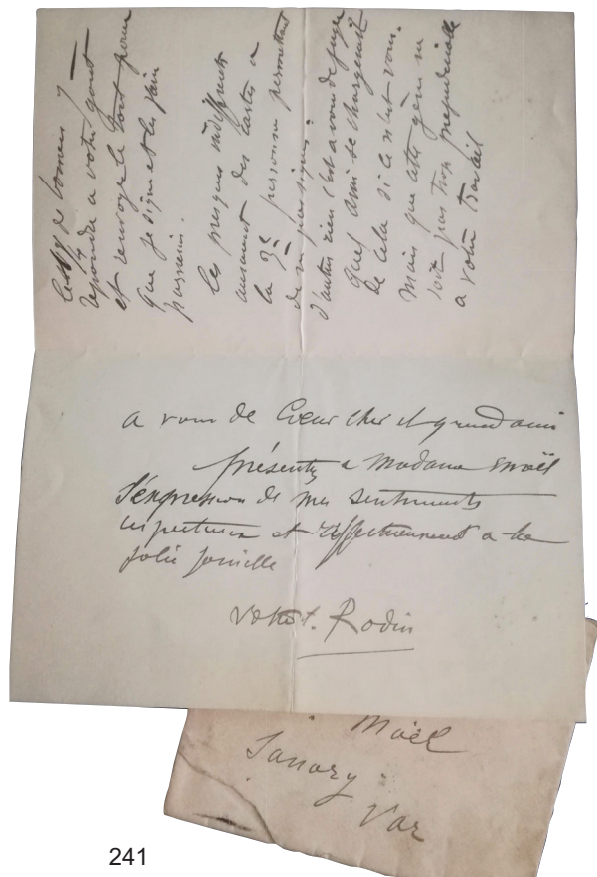 de
repondre a votre gout
et renvoyer le tout pour
que je signe et les fais
parvenir.
les presque indifferents
auraient des cartes a
la 3e personne permettant
de ne pas signer.
d'autres rien c'est a vous de juger
quel ami se chargerait
de cela si ce n'est vous.
mais que cette gêne ne
soit pas trop prejudiciable
a votre travail
a vous de Coeur cher et grand ami
présentez a Madame
l'expression de mes sentiments
respectueux et affectueusement a la
jolie famille
votre. Rodin
Sanary
Var
241